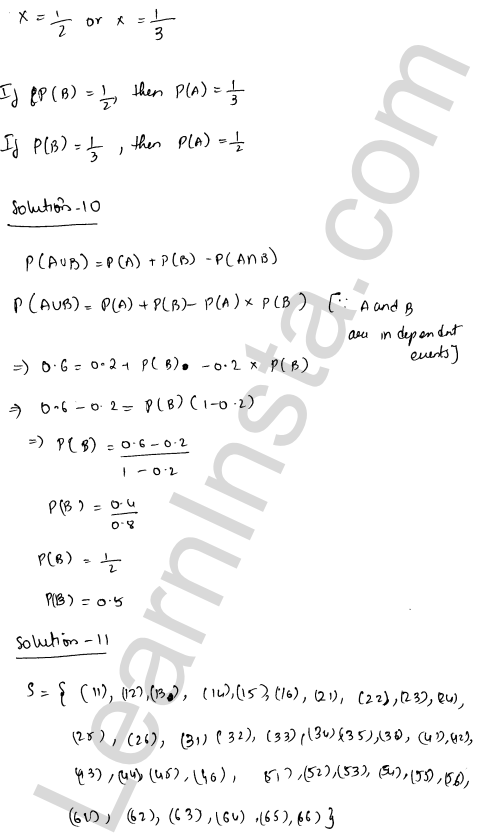 x = 1/2 or x = 1/3
If P(B) = 1/2, then P(A) = 1/3
If P(B) = 1/3, then P(A) = 1/2
Solution-10
P(A∪B) = P(A) + P(B) - P(A∩B)
P(A∪B) = P(A) + P(B) - P(A) × P(B) [∵ A and B
are independent
events]
⇒ 0.6 = 0.2 + P(B) - 0.2 × P(B)
⇒ 0.6 - 0.2 = P(B) (1-0.2)
⇒ P(B) = 0.6 - 0.2 / 1 - 0.2
P(B) = 0.4/0.8
P(B) = 1/2
P(B) = 0.5
Solution-11
S = { (11), (12), (13), (14), (15), (16), (21), (22), (23), (24),
(25), (26), (31) (32), (33), (34) (35), (36), (41), (42),
(43), (44), (45), (46), (51), (52), (53), (54), (55), (56),
(61), (62), (63), (64), (65), (66) }
LearnInsta.com